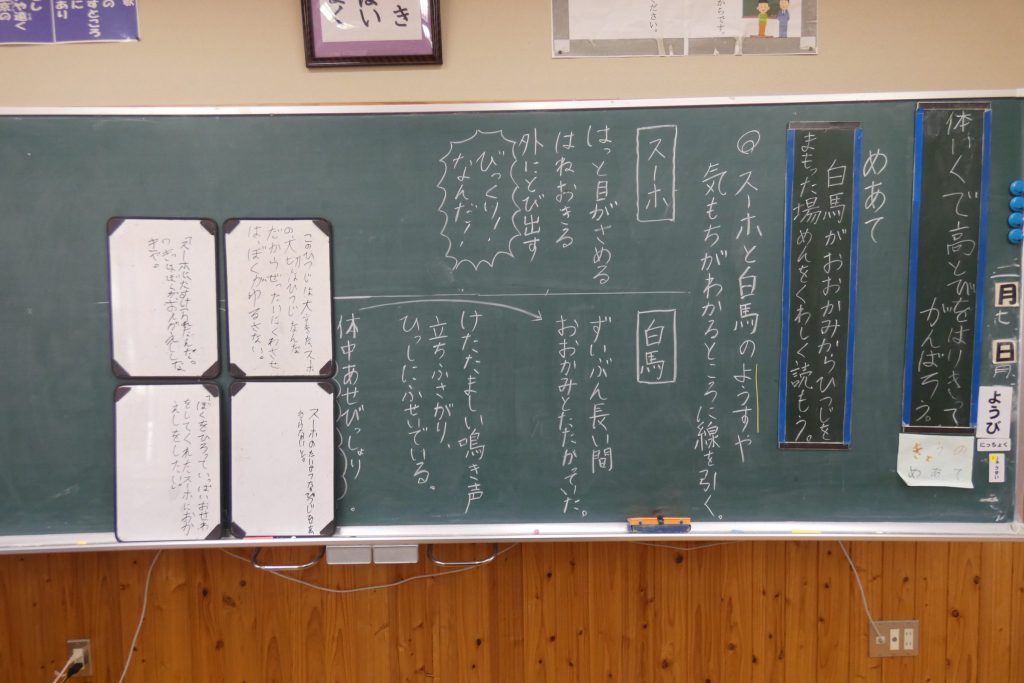 体いくで高とびをはりきって
がんばろう。
二月七日
ようび
にっちょく
きょうの
めあて
めあて
白馬がおおかみからひつじを
まもった場めんをくわしく読もう。
◎スーホと白馬のようすや
気もちがわかるところに線を引く。
スーホ
はっと目がさめる
はねおきる
外にとび出す
びっくり!
なんだ?
白馬
ずいぶん長い間
おおかみとたたかっていた。
けたたましい鳴き声
立ちふさがり、
ひっしにふせいでいる。
体中あせびっしょり
このひつじは大すきなスーホ
の大切なひつじなんだ
だからぜったいにくわさせ
は、ぼくがゆるさない。
「ぼくをひろって、いっぱいおせわ
をしてくれたスーホにおか
えしをしたい」
ください。
からです。